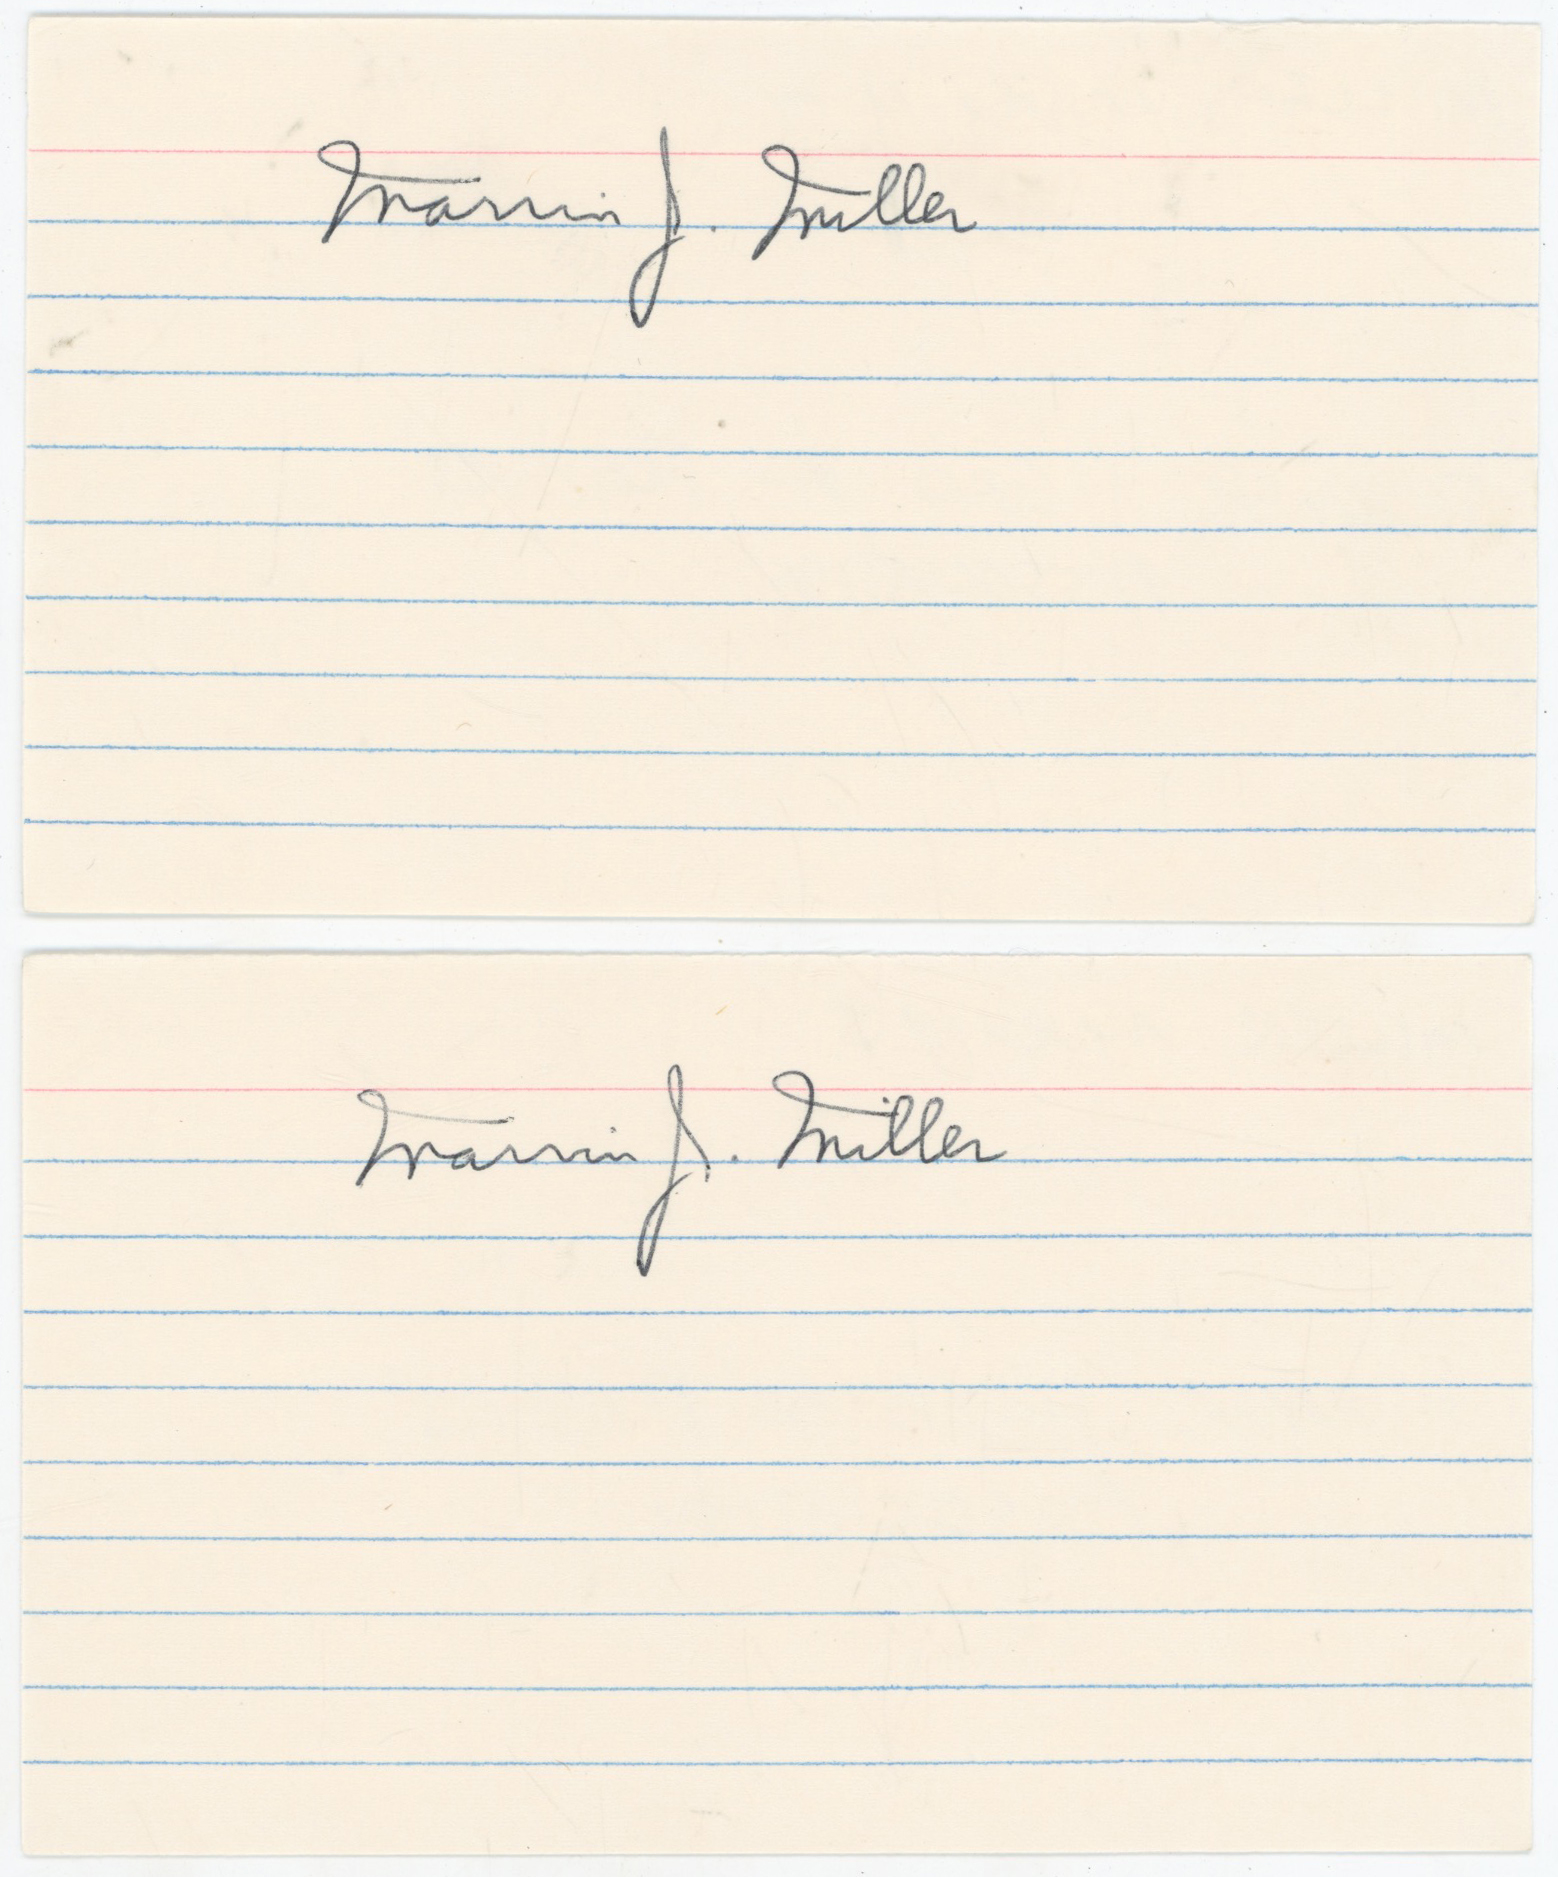 Marvin J. Miller
Marvin J. Miller